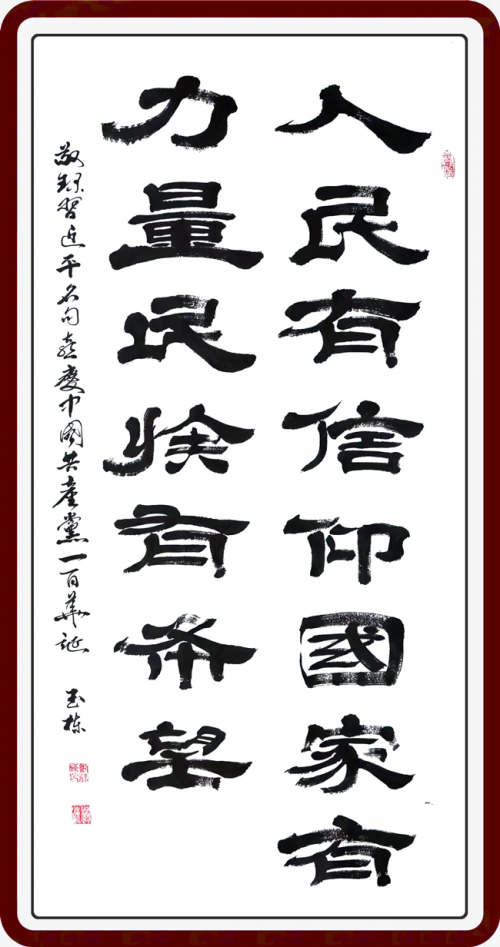 人民有信仰國家有
力量民族有希望
敬錄習近平名句喜慶中國共產黨一百華誕
玉棟